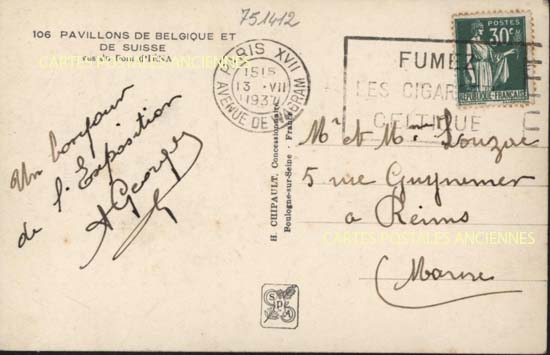 751412
106 PAVILLONS DE BELGIQUE ET
DE SUISSE
vus du Pont d'IENA
Un bonjour
de l'Exposition
Georges
H. CHIPAULT, Concessionnaire
Boulogne-sur-Seine - France
PARIS XVII
1515
13 · VII
1937
AVENUE DE WAGRAM
FUMEZ
LES CIGARETTES
CELTIQUE
POSTES
30c
REPUBLIQUE FRANÇAISE
Mr et Mme Louzac
5 rue Guynemer
à Reims
Marne
CARTES POSTALES ANCIENNES
CARTES POSTALES ANCIENNES